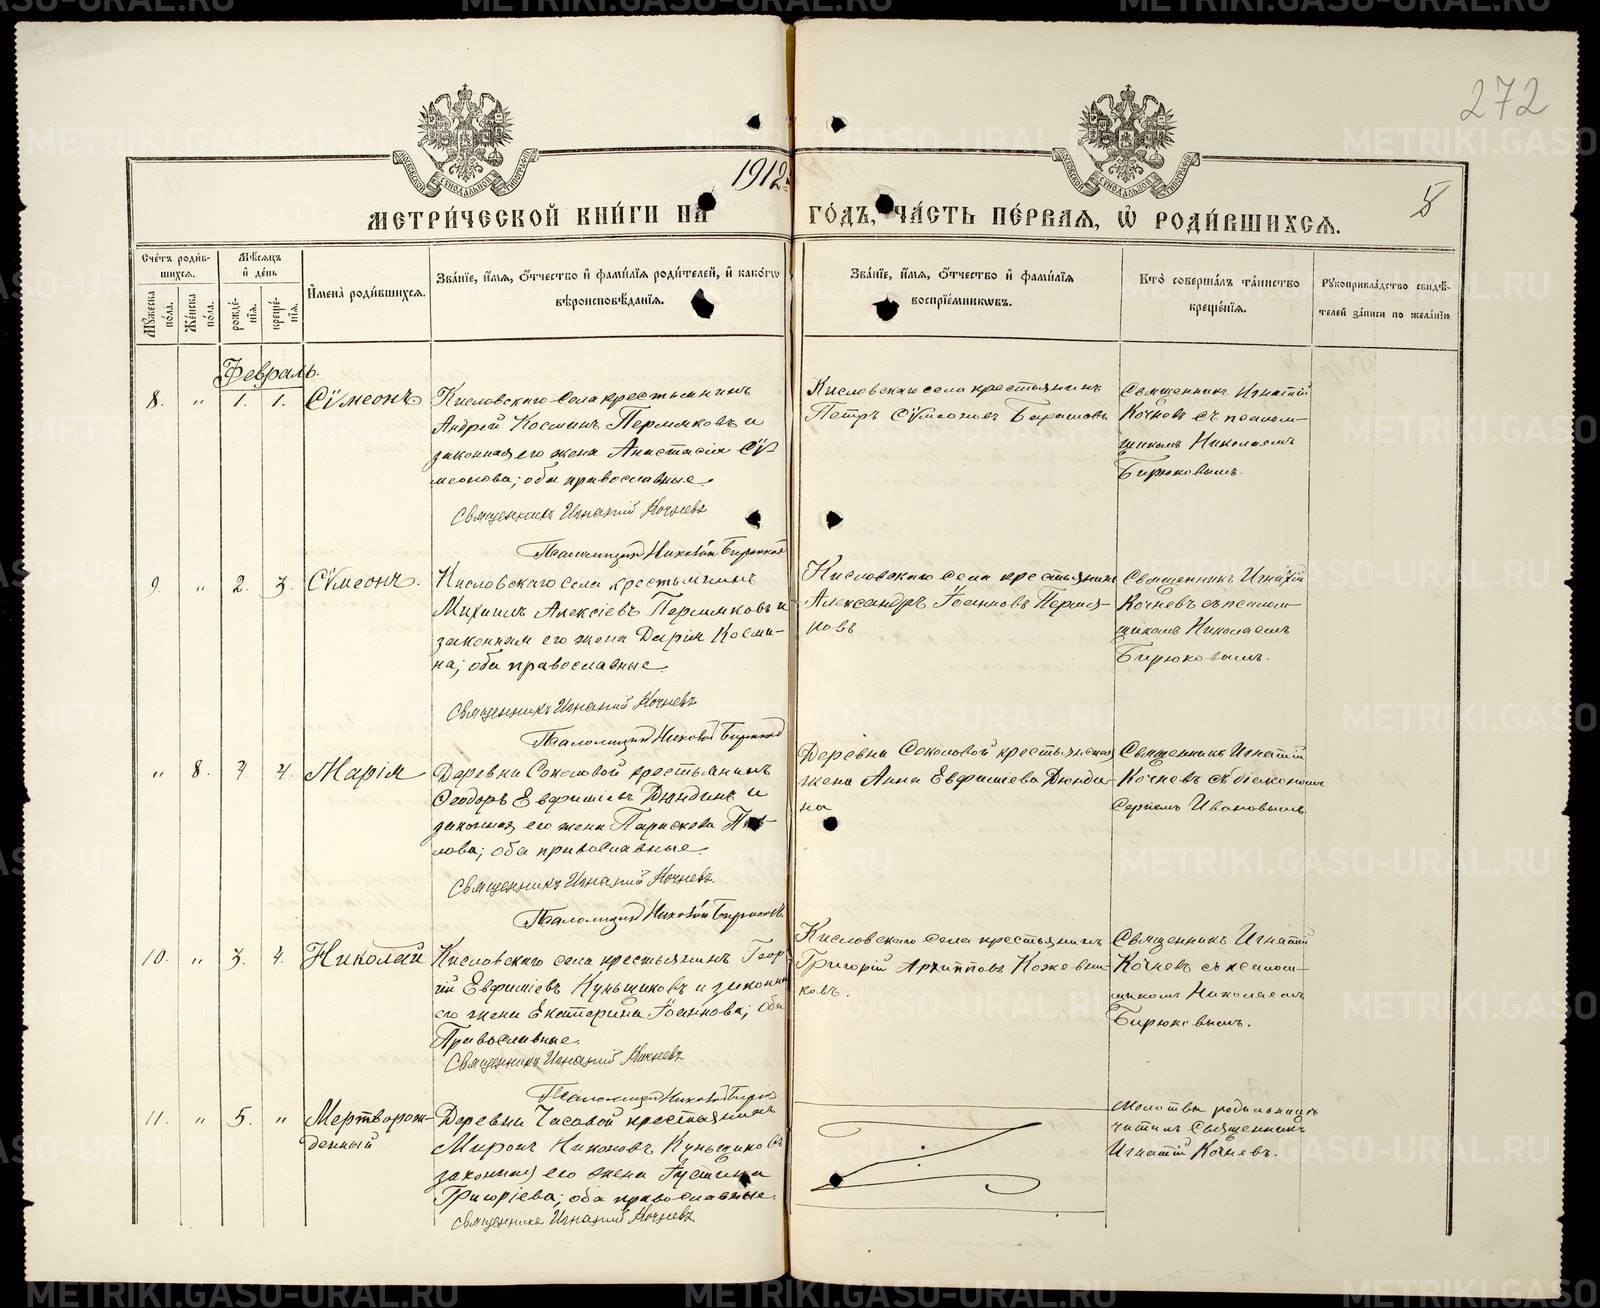 272
1912 г.
5
МЕТРИ́ЧЕСКОЙ КНИ́ГИ НА
ГО́ДЪ, ЧА́СТЬ ПЕ́РВАЯ, Ѡ҆ РОДИ́ВШИХСЯ.
Счетъ роди́вшихся.
Мѹжеска по́ла.
Же́нска по́ла.
Мѣсяцъ и҆ де́нь
рожде́нїя.
креще́нїя.
И҆мена̀ роди́вшихся.
Зва́нїе, и҆́мя, ѻ҆́тчество и҆ фами́лїя роди́телей, и҆ како́гѡ
вѣроисповѣ́данїя.
Зва́нїе, и҆́мя, ѻ҆́тчество и҆ фами́лїя
воспрїе́мникѡвъ.
Кто̀ соверша́лъ та́инство
креще́нїя.
Рѹкоприкла́дство свидѣ́-
телей за́писи по жела́нїю.
Февраль.
8. " 1. 1. Сѵмеонъ
Кисловскаго села крестьянинъ
Андрей Космин Пермяковъ и
законная его жена Анастасія Сѵ-
меонова; оба православные.
Священникъ Игнатій Кочневъ
Псаломщикъ Николай Бирюковъ
Кисловскаго села крестьянинъ
Петръ Сѵмеоновъ Барашовъ
Священникъ Игнатій
Кочневъ съ псалом-
щикомъ Николаемъ
Бирюковымъ.
9. " 2. 3. Сѵмеонъ.
Кисловскаго села крестьянинъ
Михаилъ Алексіевъ Пермяковъ и
законная его жена Дарія Косми-
на; оба православные
Священникъ Игнатій Кочневъ
Псаломщикъ Николай Бирюковъ
Кисловскаго села крестьянинъ
Александръ Іоанновъ Пермя-
ковъ
Священникъ Игнатій
Кочневъ съ псалом-
щикомъ Николаемъ
Бирюковымъ.
" 8. 4. 4. Марія
Деревни Соколовой крестьянинъ
Ѳеодоръ Евфиміевъ Дюндинъ и
законная его жена Параскева Пав-
лова; оба православные.
Священникъ Игнатій Кочневъ
Псаломщикъ Николай Бирюковъ
Деревни Соколовой крестьянская
жена Анна Евфиміева Дюнди-
на
Священникъ Игнатій
Кочневъ съ діакономъ
Сергіемъ Ивановымъ
10. " 3. 4. Николай
Кисловскаго села крестьянинъ Геор-
гій Евфиміевъ Куньщиковъ и законная
его жена Екатерина Іоаннова; оба
Православные.
Священникъ Игнатій Кочневъ
Псаломщикъ Николай Бирюковъ
Кисловскаго села крестьянинъ
Григорій Архипповъ Кожевни-
ковъ.
Священникъ Игнатій
Кочневъ съ псалом-
щикомъ Николаемъ
Бирюковымъ.
11. " 5. " Мертворож-
денный
Деревни Часовой крестьянинъ
Миронъ Никоновъ Куньщиковъ
законная его жена Іустина
Григоріева; оба православные.
Священникъ Игнатій Кочневъ
Молитвы родильницѣ
читалъ Священникъ
Игнатій Кочневъ.